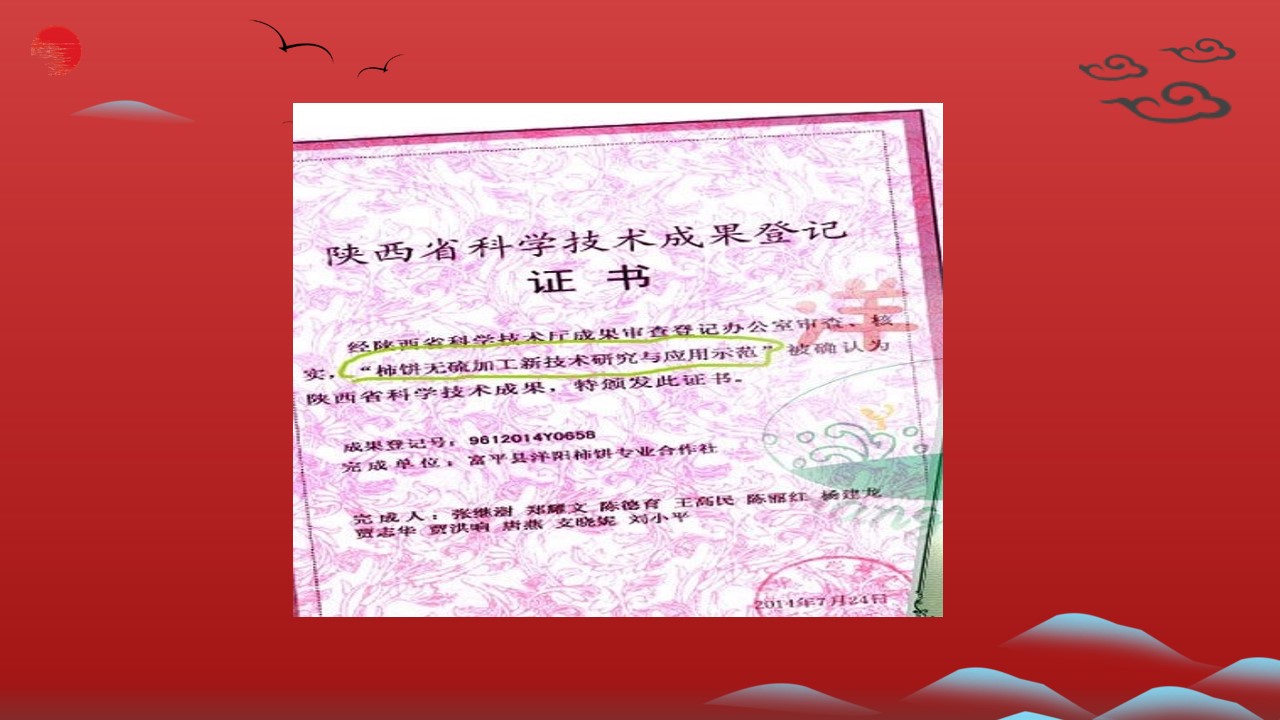 陕西省科学技术成果登记
证书
洋
经陕西省科学技术厅成果审查登记办公室审查、核
实，“柿饼无硫加工新技术研究与应用示范”被确认为
陕西省科学技术成果，特颁发此证书。
成果登记号：9612014Y0658
完成单位：富平县洋阳柿饼专业合作社
完成人：张继澍 郑耀文 陈德育 王高民 陈丽红 杨建龙
贾志华 贾洪响 唐燕 文晓妮 刘小平
2014年7月24日